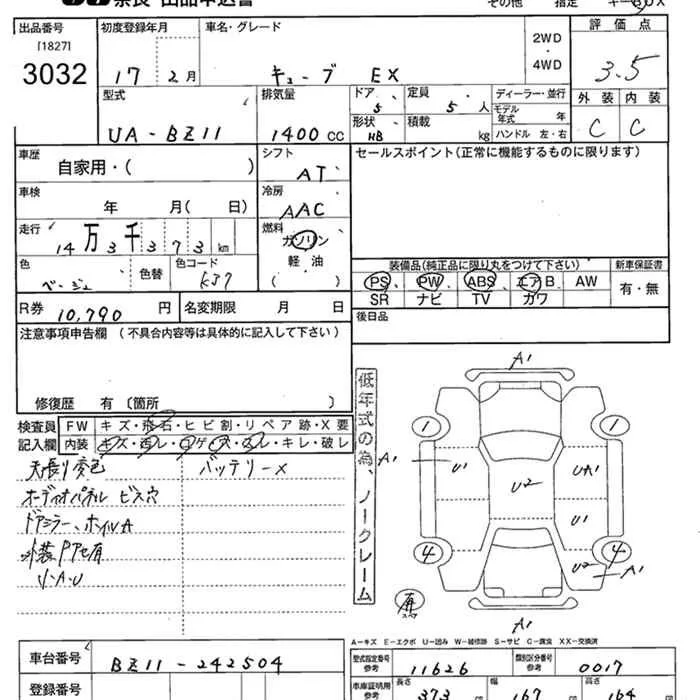 奈良 出品申込書 その他 指定 キーBOX
出品番号 初度登録年月 車名・グレード 2WD・4WD 評価点
[1827]
3032 17 2月 キューブ EX 3.5
型式 排気量 ドア 5 定員 5人 ディーラー・並行 外装 内装
UA-BZ11 1400cc 形状 HB 積載 kg モデル年式 年 C C
ハンドル 左・右
車歴 自家用・( ) シフト AT セールスポイント(正常に機能するものに限ります)
車検 年 月( 日) 冷房 AAC
走行 14万3千373km 燃料 ガソリン
軽・油
( )
色 ベージュ 色替 色コード
装備品(純正品に限り丸をつけて下さい) 新車保証書
PS、PW、ABS、エアB、AW 有・無
SR ナビ TV カワ
R券 10,790円 名変期限 月 日 後日品
注意事項申告欄(不具合内容等は具体的に記入して下さい)
修復歴 有〔箇所 〕
検査員 FW キズ・飛石・ヒビ割・リペア跡・X要
記入欄 内装 キズ・汚レ・コゲ・穴・スレ・キレ・破レ
天張り変色 バッテリーX
オーディオパネル ビス穴
ドアミラー、ホイルA
外装ドアセ有
小A.U
低年式の為、ノークレーム
A1
1 1
A1 U1 U2 UA1
U1
4 4
U2 A1
A1
A-キズ E-エクボ U-凹み W-補修跡 S-サビ C-腐食 XX-交換済
車台番号 BZ11-242504
型式指定番号 参考 11626 類別区分番号 参考 0017
登録番号
車庫証明用 参考 長さ 373 幅 167 高さ 164